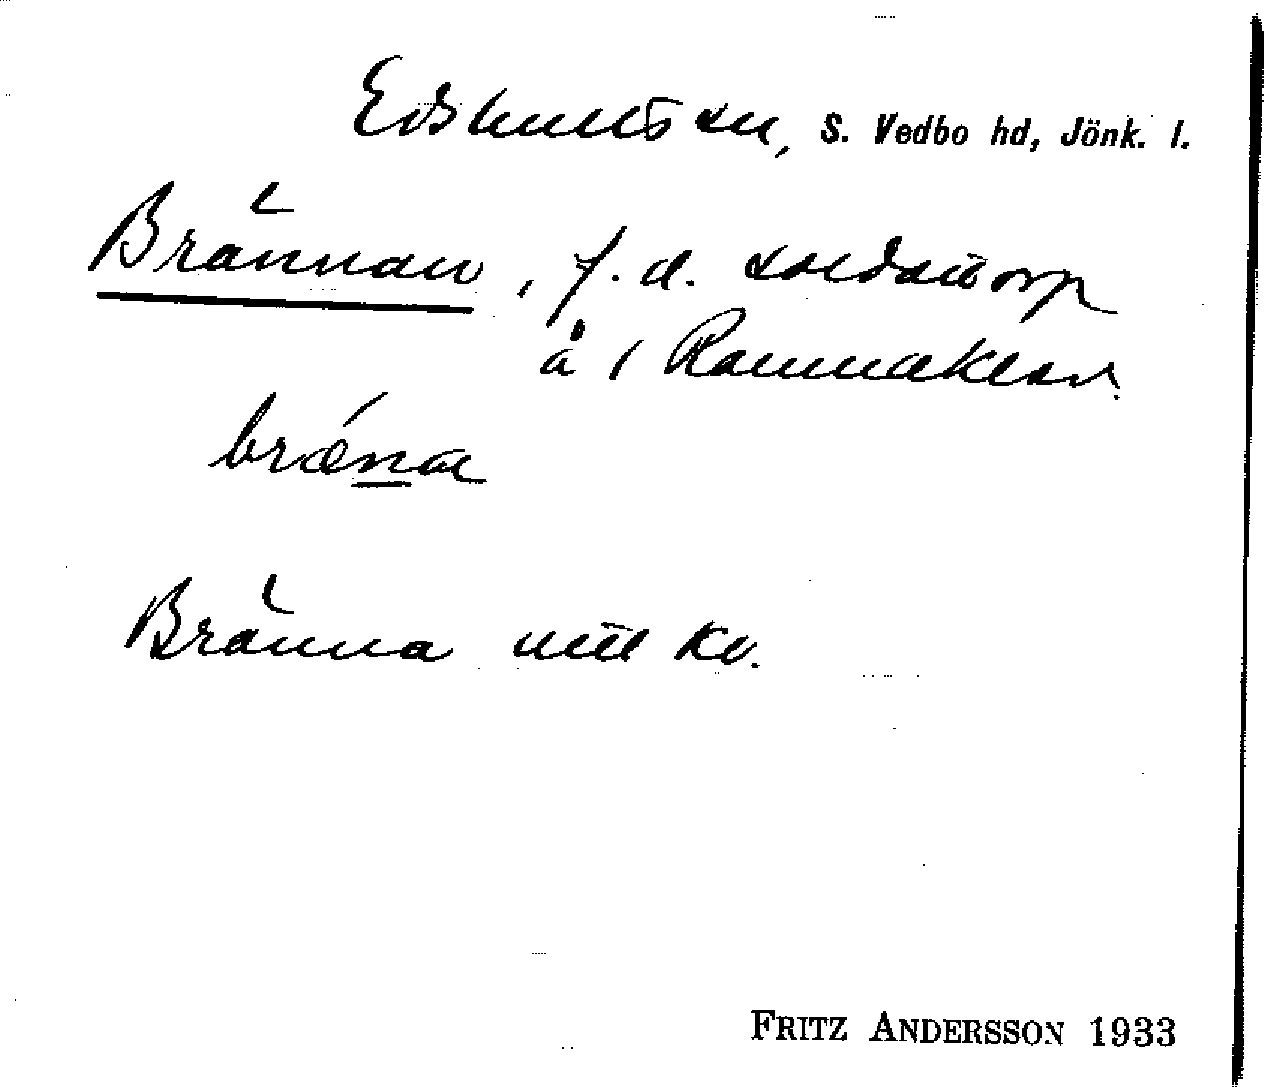 Edshults sn, S. Vedbo hd, Jönk. l.
Brännan, f. d. soldattorp
å 1 Rommakler.
bræ´na
Bränna utt kv.
FRITZ ANDERSSON 1933